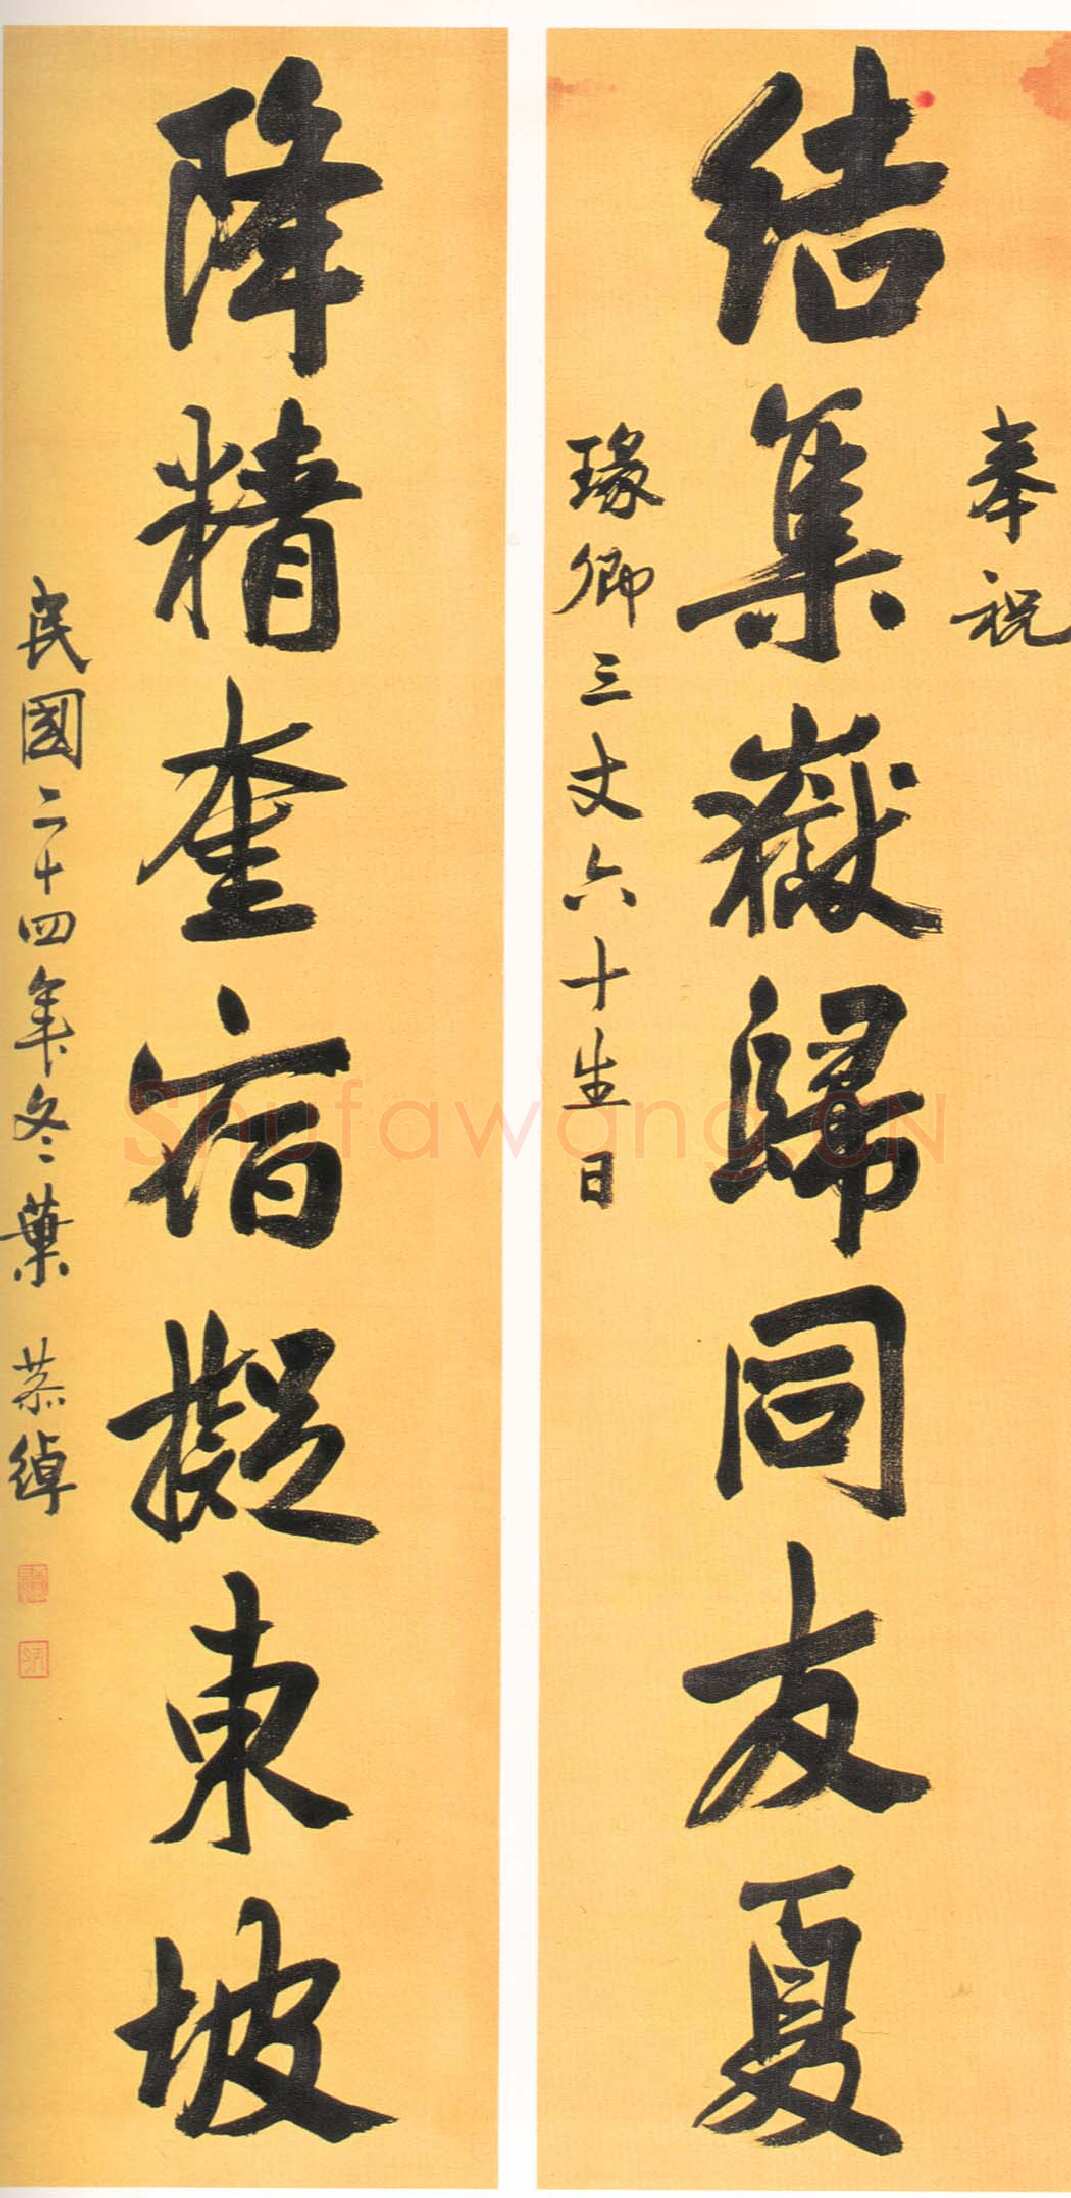 奉祝
結集嶽歸同友夏
瑑卿三丈六十生日
降精奎宿擬東坡
民國二十四年冬葉恭綽
Shufawang.CN